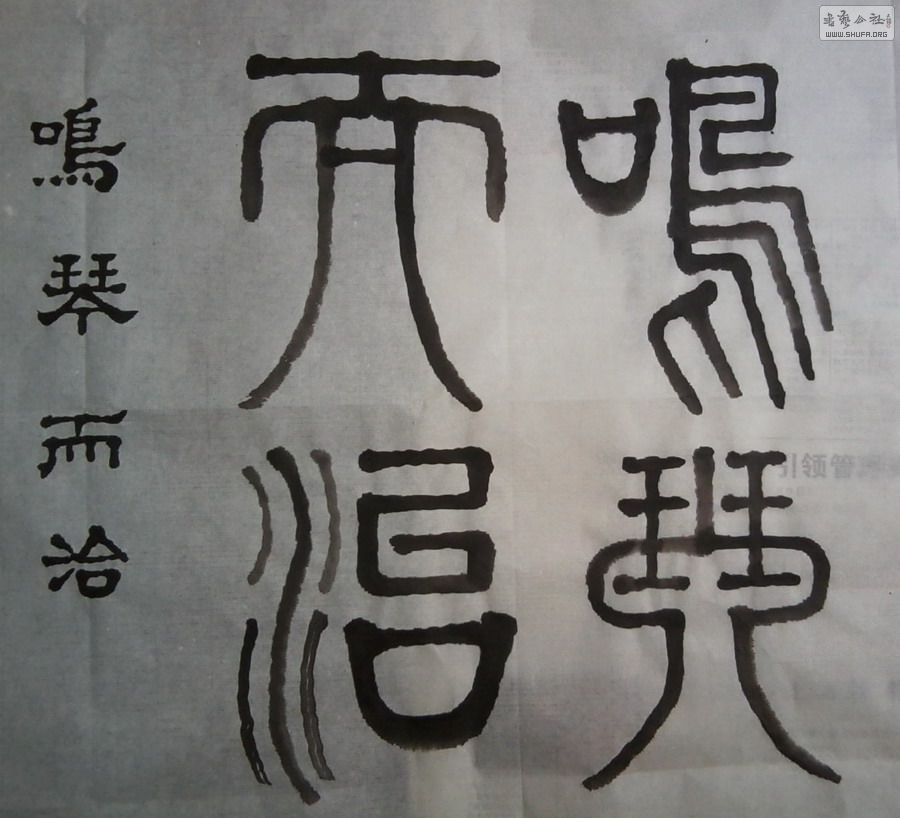 鳴琴
而治
鳴琴而治
書藝公社
WWW.SHUFA.ORG
引领管